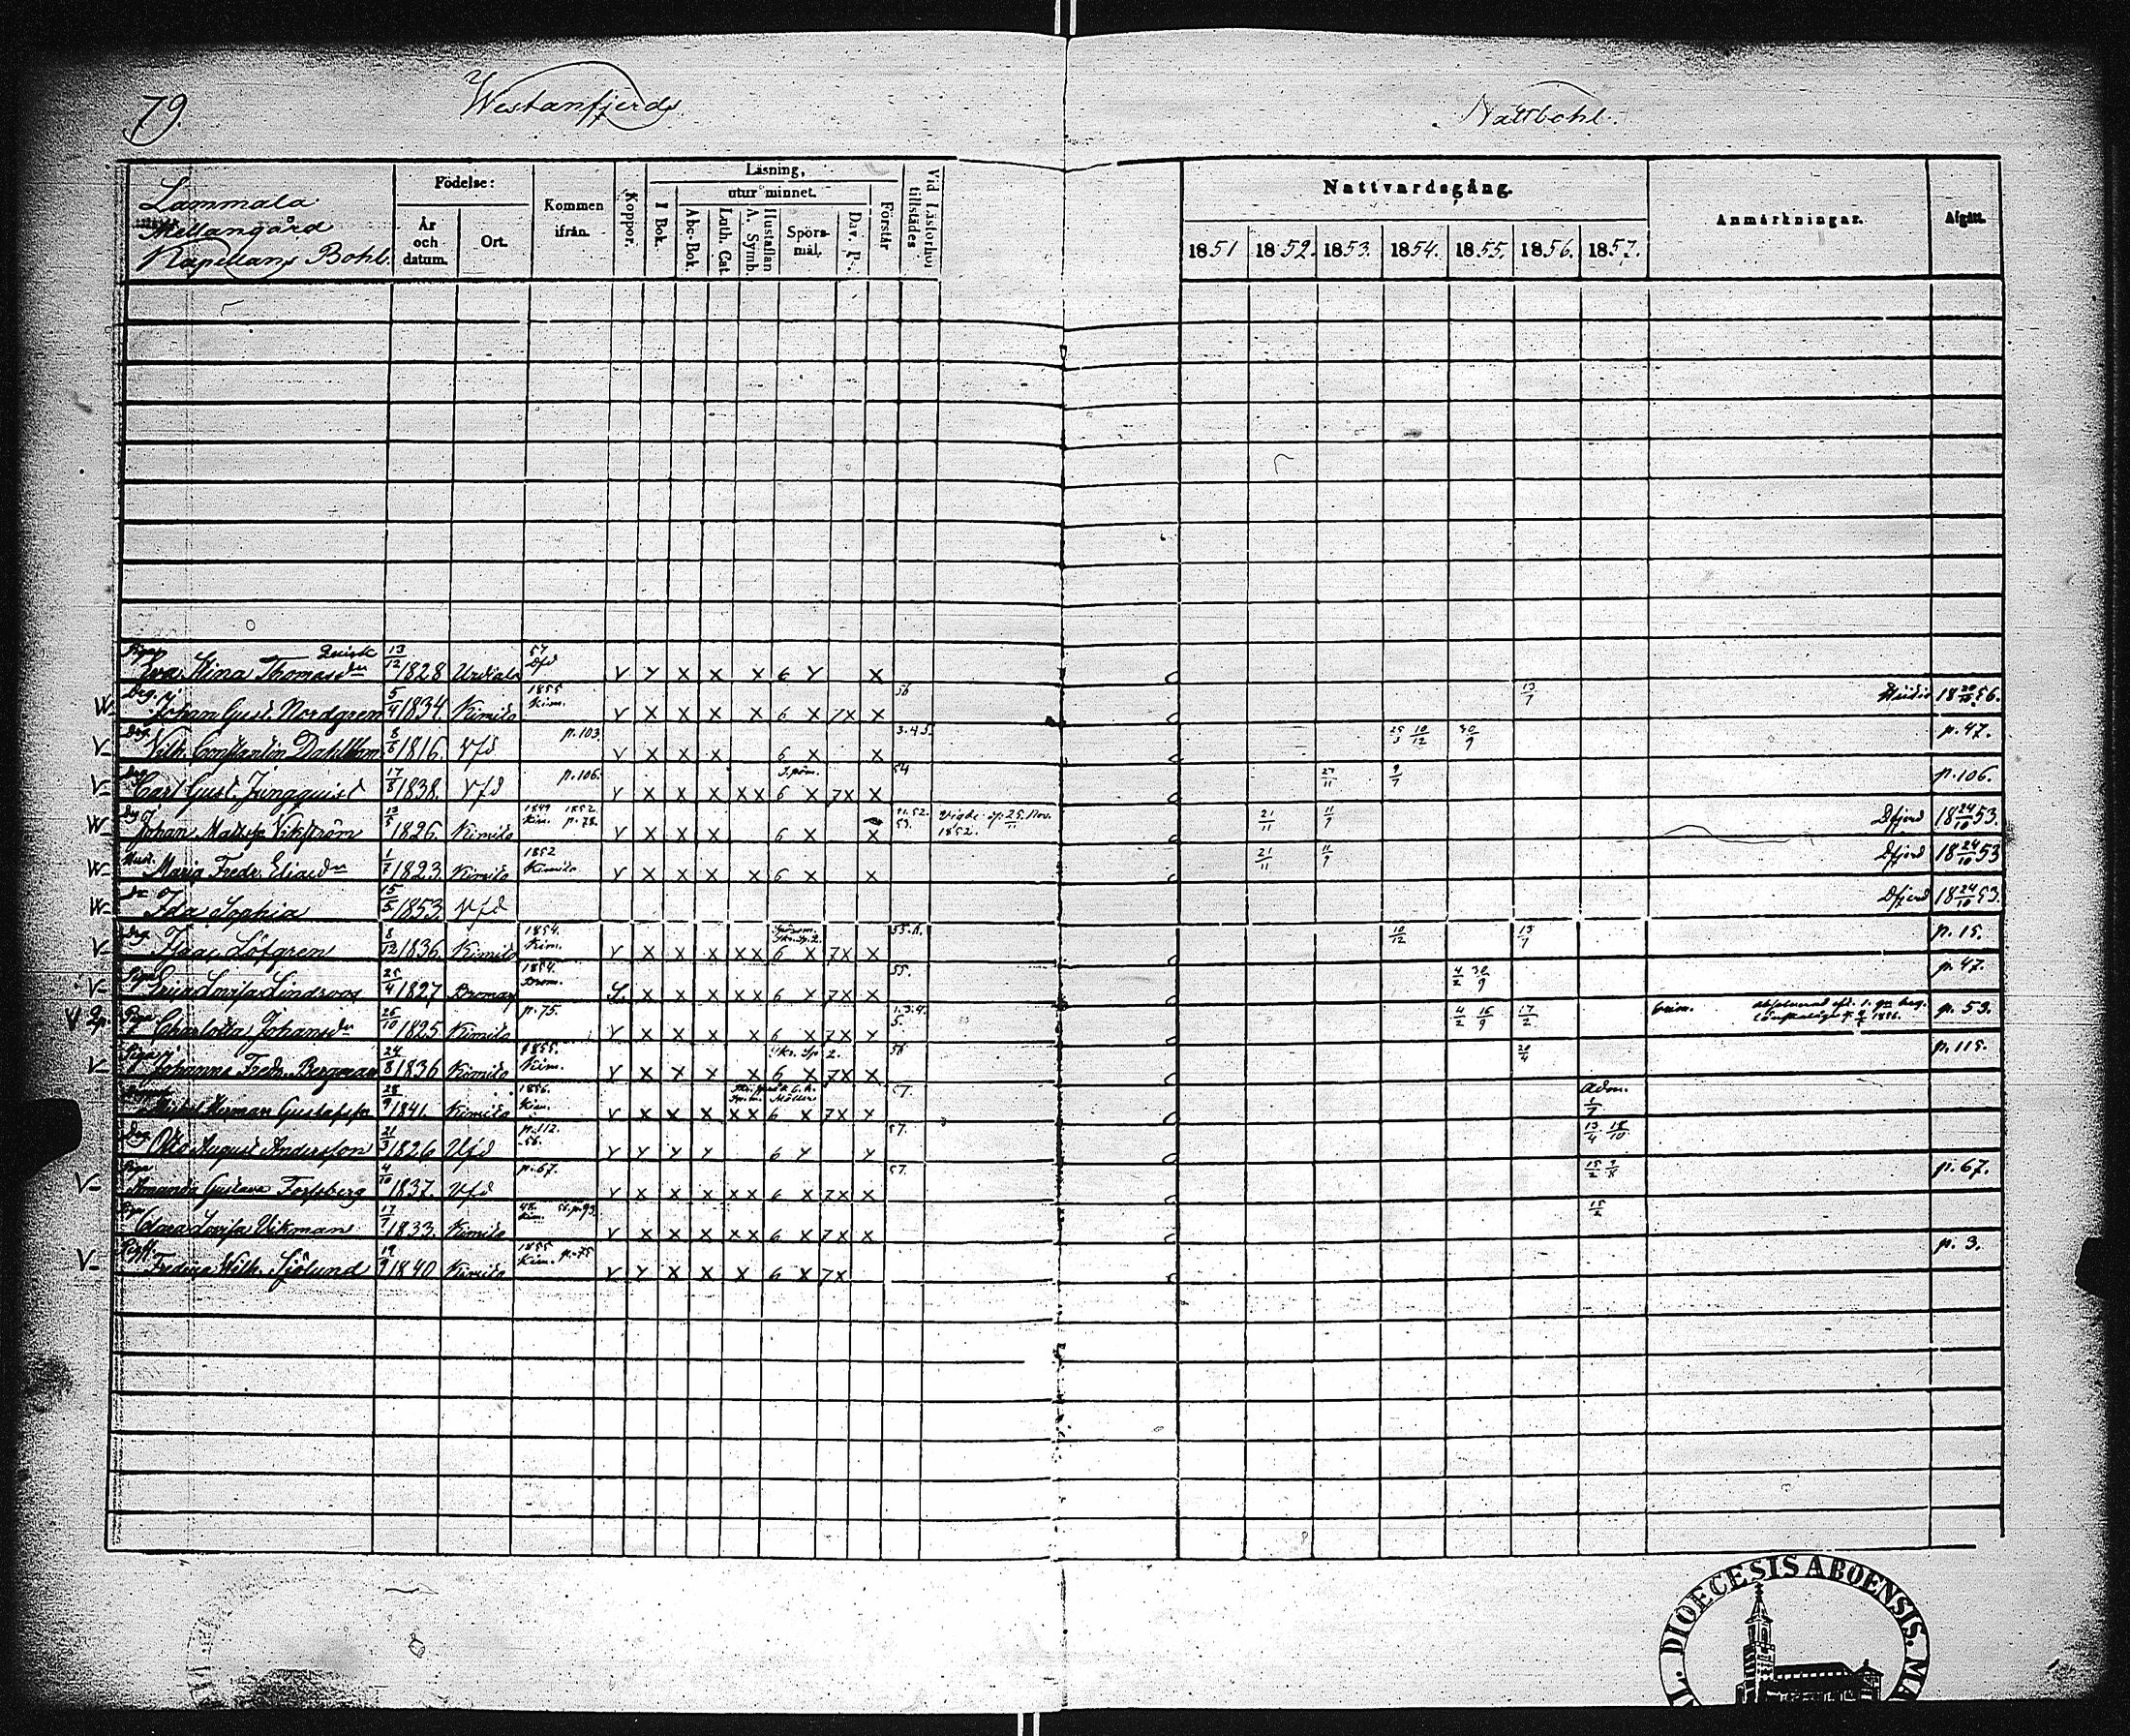 79. Westanfjerds Nattbohl.
Lammala
Mellangård
Kapellans Bohl.
Födelse: År och datum. Ort.
Kommen ifrån.
Koppor.
Läsning,
I Bok.
utur minnet.
Abc-Bok.
Luth. Cat.
Hustaflan A. Symb.
Spörs-mål.
Dav. P.
Förstår
Vid Läsförhör tillstädes
Nattvardsgång.
1851 1852. 1853. 1854. 1855. 1856. 1857.
Anmärkningar.
Afgått.
Piga Eva Stina Thomasdr 13/12 1828 Urdiala 57 Dfd v y x x x 6 y x
W Drg. Johan Gust. Nordgren 5/4 1834. Kimito 1855 Kim. v x x x x 6 x 7x x 56 13/7 1856.
V Drg. Vilh. Constantin Dahlblom 8/6 1816. Vfd p. 103. v x x x 6 x x 3.4.5. 10/12 30/9 p. 47.
V Drg Carl Gust. Jungquist 17/8 1838. Vfd p. 106. v x x x x x 6 x 7x x 54 27/11 9/7 p. 106.
W Johan Matts. Vikström 13/5 1826. Kimito 1849 Kim. 1852 p. 78. v x x x 6 x x 51.52. 53. Vigde d. 25. Nov. 1852. 21/11 11/9 Dfjerd 18 24/10 53.
W Maria Fredr. Eliasdr 1/7 1823 Kimito 1852 Kimito v x x x x 6 x x 21/11 11/9 Dfjerd 18 24/10 53
W dr Ida Sophia 15/5 1853 Vfd Dfjerd 18 24/10 53.
V Drg. Isaac Löfgren 8/12 1836. Kimito 1854. Kim. v x x x x x 6 x 7x x 10/12 13/7 p. 15.
V Piga Lovisa Lindroos 25/4 1827 Bromarf 1854. Brom. x x x x x 6 x 7x x 55. 4/2 30/9 p. 47.
V Piga Charlotta Johansdr 26/10 1825 Kimito p. 75. v x x x x 6 x 7x y 1.3.4. 5. 4/2 16/9 17/2 p. 53.
V Piga Johanna Fredr. Bergman 24/8 1836 Kimito 1855. Kim. v x x x x 6 x 7x x 56 20/4 p. 115.
Herman Gustafsson 28/9 1841. Kimito 1856. Kim. v x x x x x 6 x 7x y 57. Adm. 1/7
Drg. Otto August Andersson 21/3 1826 Vfd p. 112. 56. y y y y 6 y y 57. 13/4 18/10
V Piga Amanda Gustava Forssberg 4/10 1837. Vfd p. 67. y x x x x x 6 x 7x x 57. 15/2 p. 67.
Piga Clara Lovisa Vikman 17/7 1833. Kimito Kim. 56. p. 93. v x x x x x 6 x 7x x 15/2
V Fredrica Wilh. Sjölund 19/9 1840 Kimito 1855 Kim. p. 75 v y x x x 6 x 7x p. 3.
DIOECESIS ABOENSIS.